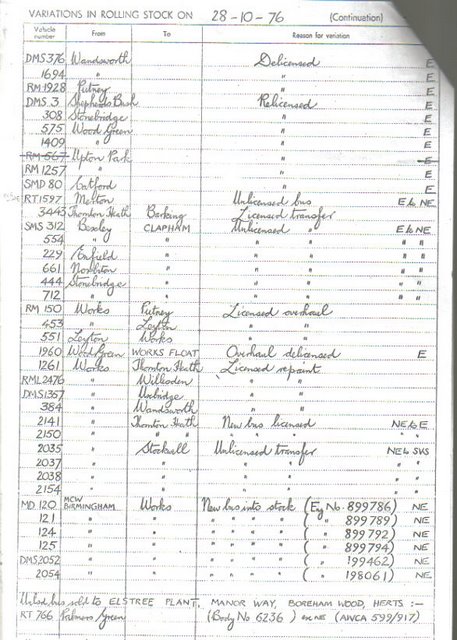 VARIATIONS IN ROLLING STOCK ON 28-10-76 (Continuation)
Vehicle number From To Reason for variation
DMS 376 Wandsworth Delicensed E
1694 " " E
RM 1928 Putney " E
DMS 3 Shepherds Bush Relicensed E
308 Stonebridge " E
575 Wood Green " E
1409 " " E
RM 567 Upton Park " E
RM 1257 " " E
SMD 80 Catford " E
RT 1597 Merton Unlicensed bus E to NE
3443 Thornton Heath Barking Licensed transfer
SMS 312 Bexley CLAPHAM Unlicensed " E to NE
554 " " " " " "
229 Enfield " " " " "
661 Norbiton " " " " "
444 Stonebridge " " " " "
712 " " " " " "
RM 150 Works Putney Licensed overhaul
453 " Leyton " "
551 Leyton Works " "
1960 Wood Green WORKS FLOAT Overhaul delicensed E
1261 Works Thornton Heath Licensed repaint
RML 2476 " Willesden " "
DMS 1367 " Uxbridge " "
384 " Wandsworth " "
2141 " Thornton Heath New bus licensed NE to E
2150 " " " " " " " "
2035 " Stockwell Unlicensed transfer NE to SVS
2037 " " " " "
2038 " " " " "
2154 " " " " "
MD 120 MCW BIRMINGHAM Works New bus into stock (Eng No. 899786) NE
121 " " " " " " ( " 899789) NE
124 " " " " " " ( " 899792) NE
125 " " " " " " ( " 899794) NE
DMS 2052 " " " " " " ( " 199462) NE
2054 " " " " " " ( " 198061) NE
bus sold to ELSTREE PLANT, MANOR WAY, BOREHAM WOOD, HERTS :-
RT 766 Palmers Green (Body No 6236) ex NE (AWCA 599/917)